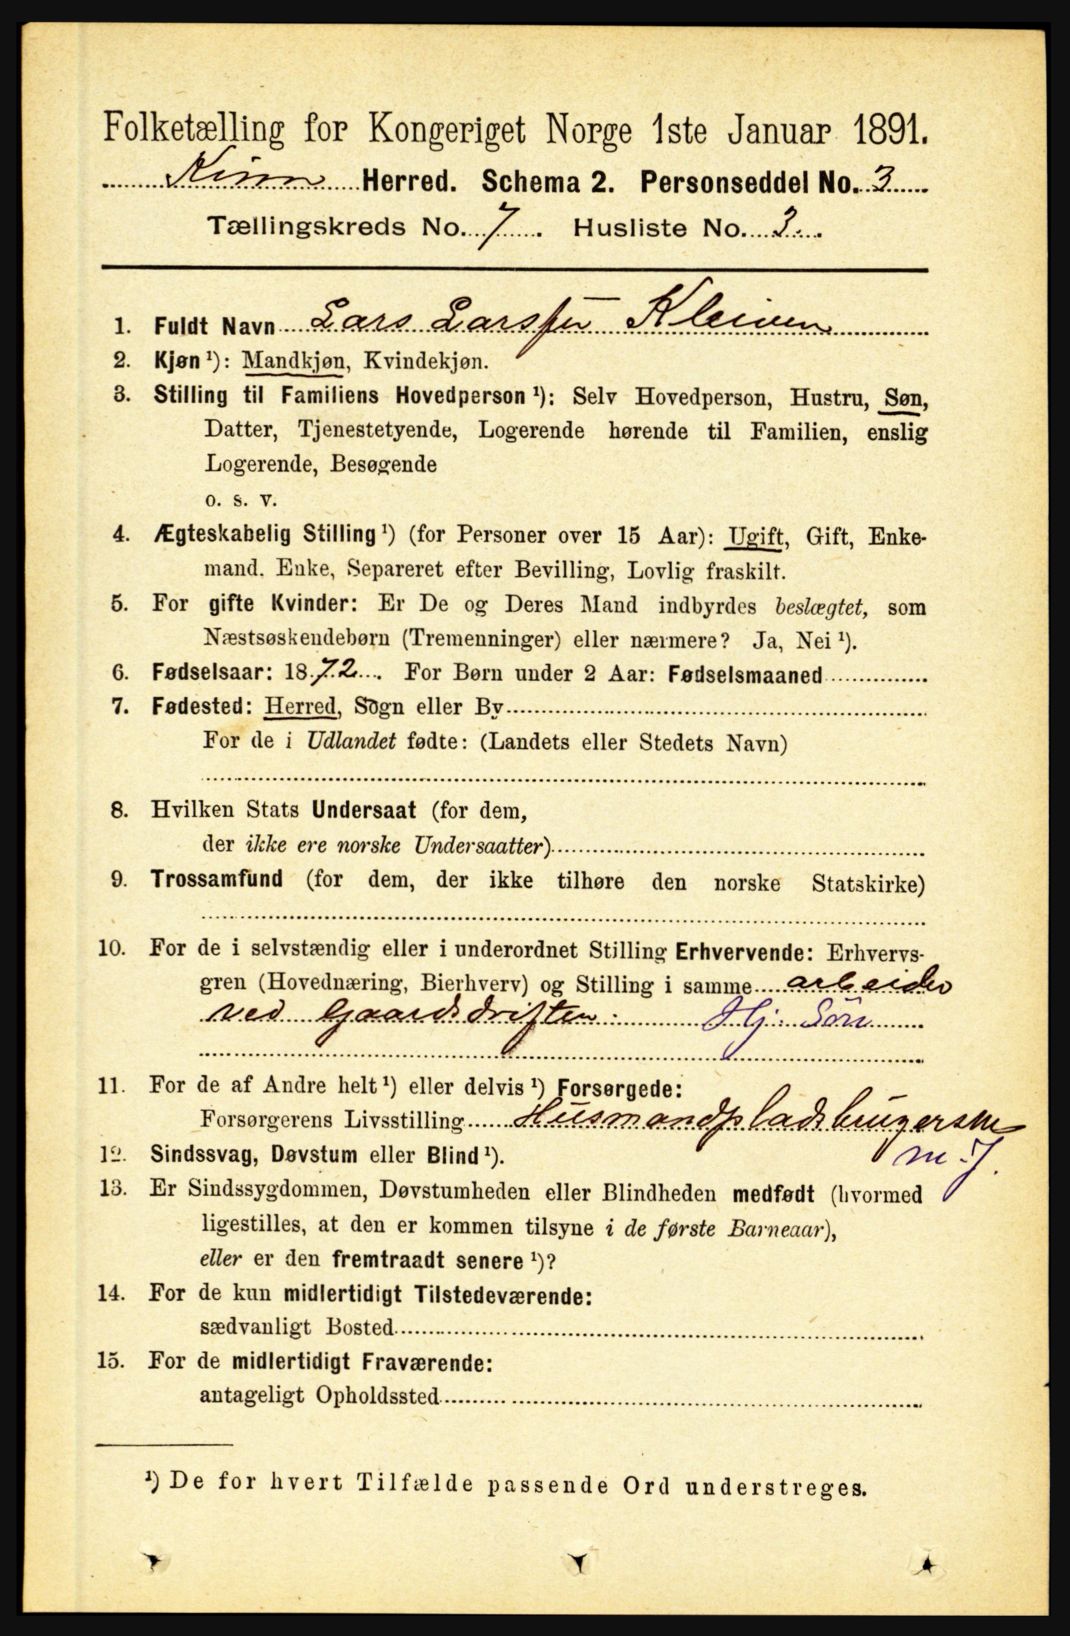 Folketælling for Kongeriget Norge 1ste Januar 1891.
Kinn Herred. Schema 2. Personseddel No. 3
Tællingskreds No. 7. Husliste No. 3.
1. Fuldt Navn Lars Larssen Kleiven
2. Kjøn ¹): Mandkjøn, Kvindekjøn.
3. Stilling til Familiens Hovedperson ¹): Selv Hovedperson, Hustru, Søn,
Datter, Tjenestetyende, Logerende hørende til Familien, enslig
Logerende, Besøgende
o. s. v.
4. Ægteskabelig Stilling ¹) (for Personer over 15 Aar): Ugift, Gift, Enke-
mand, Enke, Separeret efter Bevilling, Lovlig fraskilt.
5. For gifte Kvinder: Er De og Deres Mand indbyrdes beslægtet, som
Næstsøskendebørn (Tremenninger) eller nærmere? Ja, Nei ¹).
6. Fødselsaar: 1872. For Børn under 2 Aar: Fødselsmaaned
7. Fødested: Herred, Sogn eller By
For de i Udlandet fødte: (Landets eller Stedets Navn)
8. Hvilken Stats Undersaat (for dem,
der ikke ere norske Undersaatter)
9. Trossamfund (for dem, der ikke tilhøre den norske Statskirke)
10. For de i selvstændig eller i underordnet Stilling Erhvervende: Erhvervs-
gren (Hovednæring, Bierhverv) og Stilling i samme arbeider
ved Gaardsdriften. Hj. Søn
11. For de af Andre helt ¹) eller delvis ¹) Forsørgede:
Forsørgerens Livsstilling Husmandspladsbrugerske
m. J.
12. Sindssvag, Døvstum eller Blind ¹).
13. Er Sindssygdommen, Døvstumheden eller Blindheden medfødt (hvormed
ligestilles, at den er kommen tilsyne i de første Barneaar),
eller er den fremtraadt senere ¹)?
14. For de kun midlertidigt Tilstedeværende:
sædvanligt Bosted
15. For de midlertidigt Fraværende:
antageligt Opholdssted
¹) De for hvert Tilfælde passende Ord understreges.